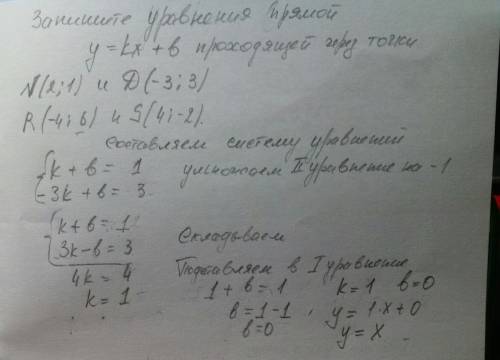 Запишите уравнения прямой
y = kx + в проходящей через точки
N(2;1) и D(-3;3)
R(-4;6) и S(4;-2).
Составляем систему уравнений
k + в = 1 умножаем II уравнение на -1
-3k + в = 3
k + в = 1
3k - в = 3 Складываем
4k = 4 Подставляем в I уравнение
k = 1 1 + в = 1 k = 1 в = 0
в = 1-1, y = 1·x + 0
в = 0 y = x